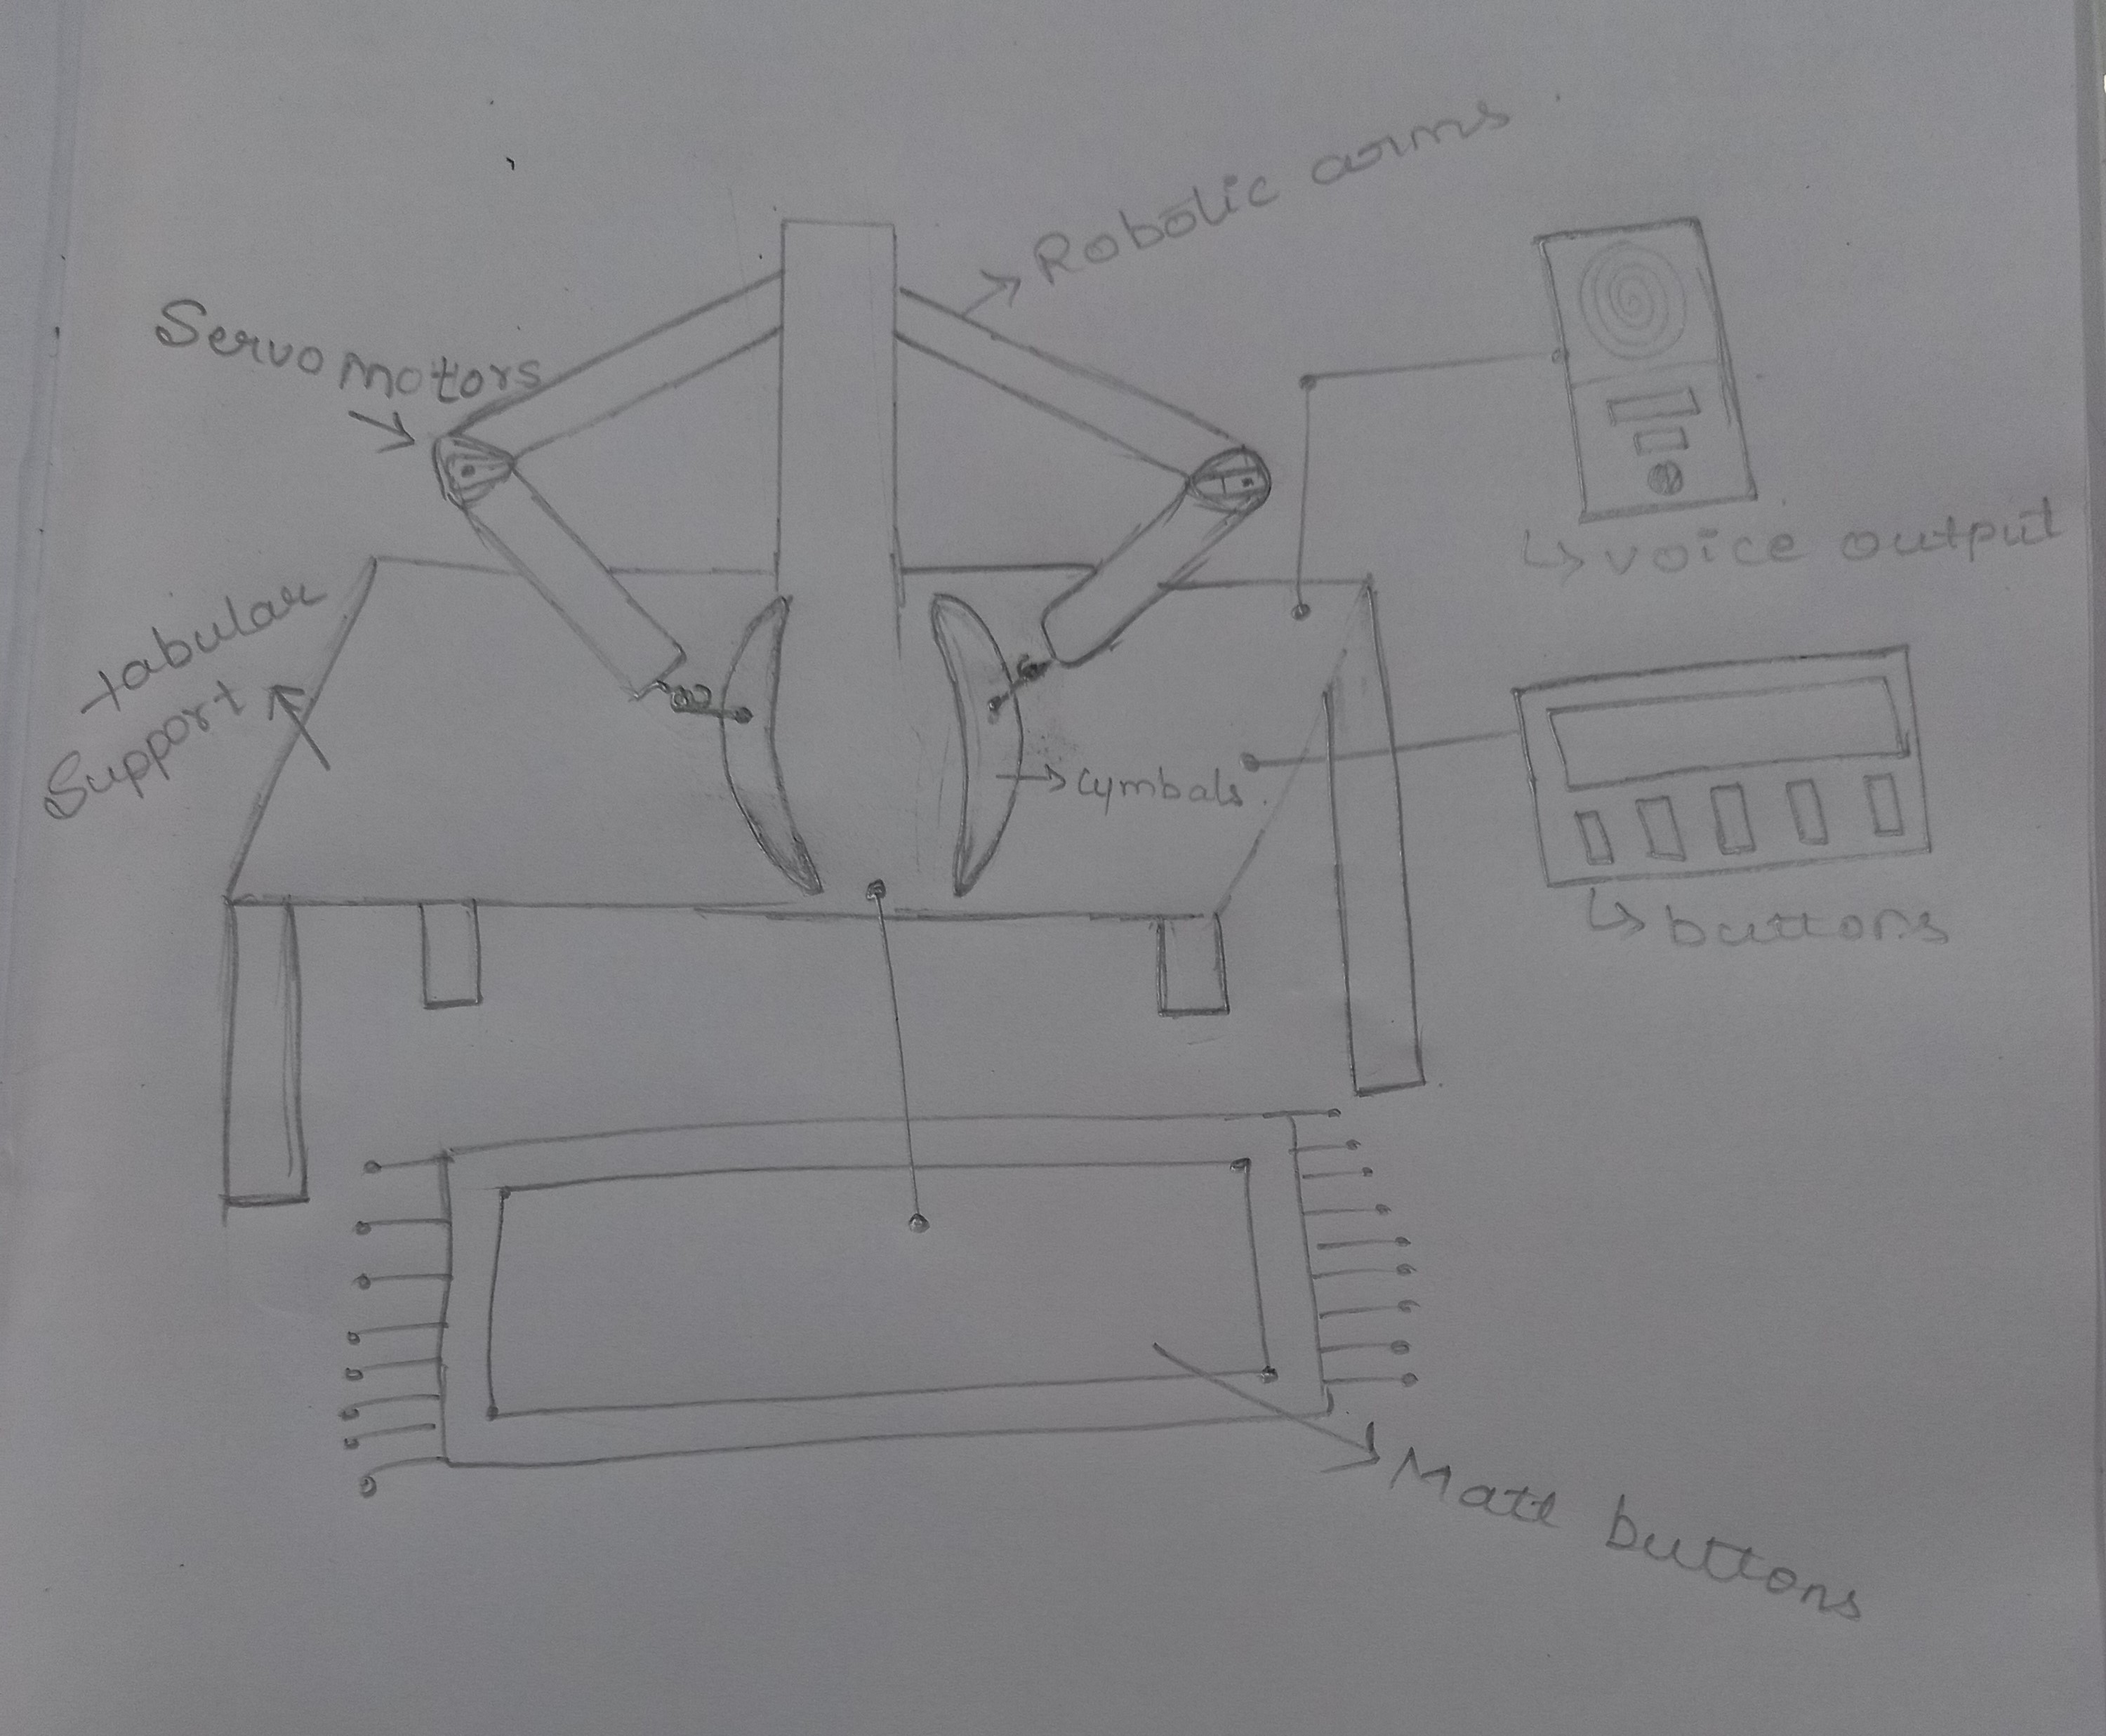 Robotic arms
Servo motors
voice output
tabular
Support
cymbals.
buttons
Matt buttons